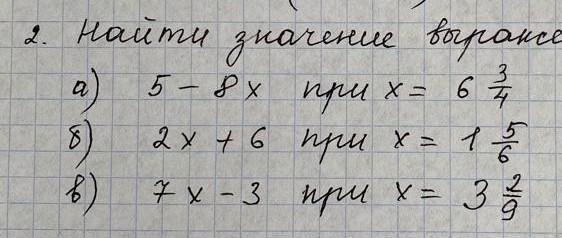 2. Найти значение
а) 5 - 8x при x = 6 3/4
б) 2x + 6 при x = 1 5/6
в) 7x - 3 при x = 3 2/9